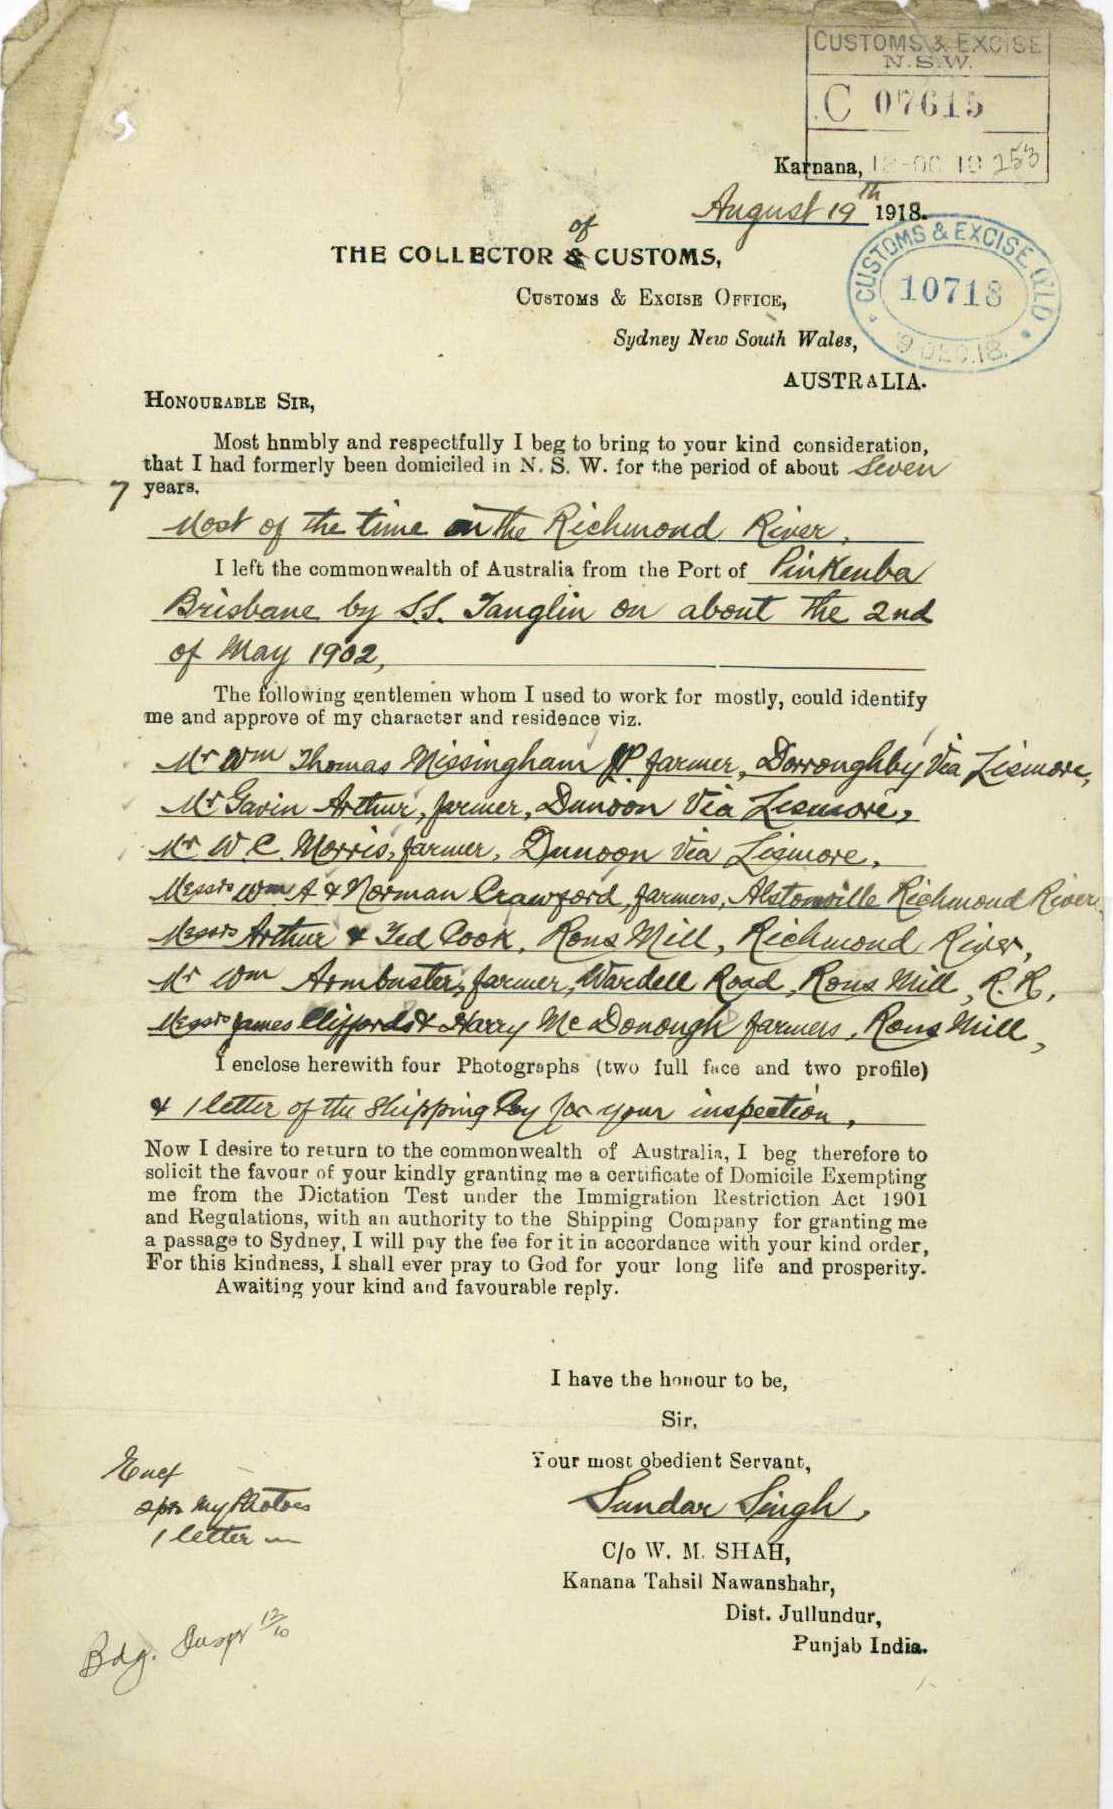 CUSTOMS & EXCISE
N.S.W.
C 07615
Karnana,
253
August 19th 1918.
of
THE COLLECTOR & CUSTOMS,
CUSTOMS & EXCISE QLD
10718
9 DEC. 18.
CUSTOMS & EXCISE OFFICE,
Sydney New South Wales,
AUSTRALIA.
HONOURABLE SIR,
Most hnmbly and respectfully I beg to bring to your kind consideration,
that I had formerly been domiciled in N. S. W. for the period of about Seven
7 years.
Most of the time on the Richmond River,
I left the commonwealth of Australia from the Port of Pinkenba
Brisbane by S.S. Tanglin on about the 2nd
of May 1902,
The following gentlemen whom I used to work for mostly, could identify
me and approve of my character and residence viz.
Mr Wm Thomas Missingham JP. farmer, Dorroughby Via Lismore,
Mr Gavin Arthur, farmer, Dunoon Via Lismore,
Mr W. C. Morris, farmer, Dunoon Via Lismore,
Messrs Wm A & Norman Crawford, farmers, Alstonville Richmond River,
Messrs Arthur & Ted Cook, Rons Mill, Richmond River,
Mr Wm Armbuster, farmer, Wardell Road, Rons Mill, R. R,
Messrs James Clifford & Harry McDonough farmers, Rons Mill,
I enclose herewith four Photographs (two full face and two profile)
& 1 letter of the Shipping Coy for your inspection,
Now I desire to return to the commonwealth of Australia, I beg therefore to
solicit the favour of your kindly granting me a certificate of Domicile Exempting
me from the Dictation Test under the Immigration Restriction Act 1901
and Regulations, with an authority to the Shipping Company for granting me
a passage to Sydney, I will pay the fee for it in accordance with your kind order,
For this kindness, I shall ever pray to God for your long life and prosperity.
Awaiting your kind and favourable reply.
I have the honour to be,
Sir,
Your most obedient Servant,
Sundar Singh,
C/o W. M. SHAH,
Kanana Tahsil Nawanshahr,
Dist. Jullundur,
Punjab India.
Encl
My Photoes
1 letter
Bdg. 12/10